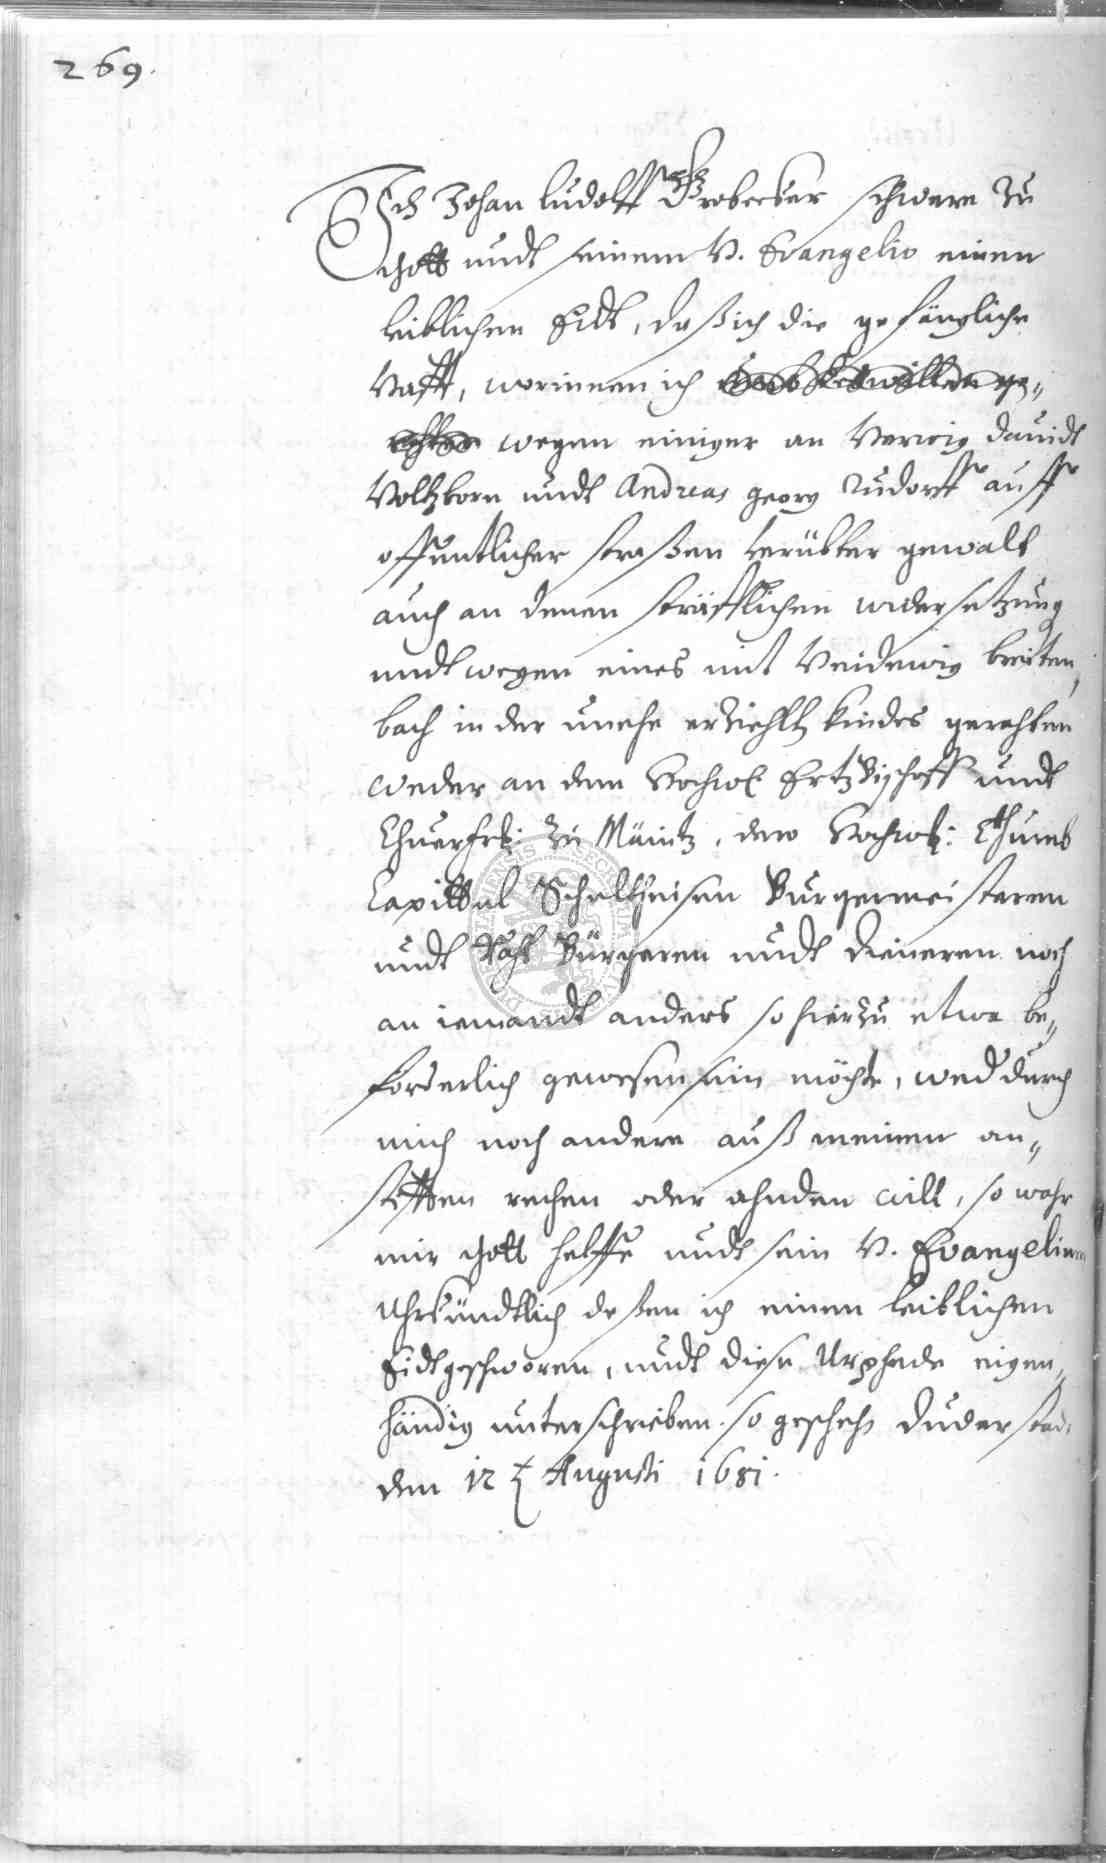 269.
Ich Johan Ludolff Grobecker schwere zu
Gott undt seinem H. Evangelio einen
leiblichen Eidt, daß ich die gefängliche
Hafft, worinnen ich
wegen einiger an Herwig Davidt
Holtzborn undt Andreas Georg Rudorff auff
offentlicher straßen verübter gewalt
auch an denen sträfflichen widersetzung
undt wegen eines mit Heidewig breiten,
bach in der unehe erziehltz kindes gerahten
weder an dem Hochw. Ertz Bischoff undt
Chuerfrl: zu Mäintz, dero Hochw: Thumb
Capittul Schultheisen Burgermeisteren
undt Raht Bürgeren undt dieneren noch
an iemandt anders so hierzu etwa be„
forderlich gewesen sein möchte, wed durch
mich noch andere auß meinen an„
stifften rechen oder ahnden will, so wahr
mir Gott helffe undt sein H. Evangelium
Uhrkündtlich deßen ich einen leiblichen
Eidt geschworen, undt diese Urphede eigen„
händig unterschrieben. so geschehn Duderstad
den 12 t Augusti 1681.